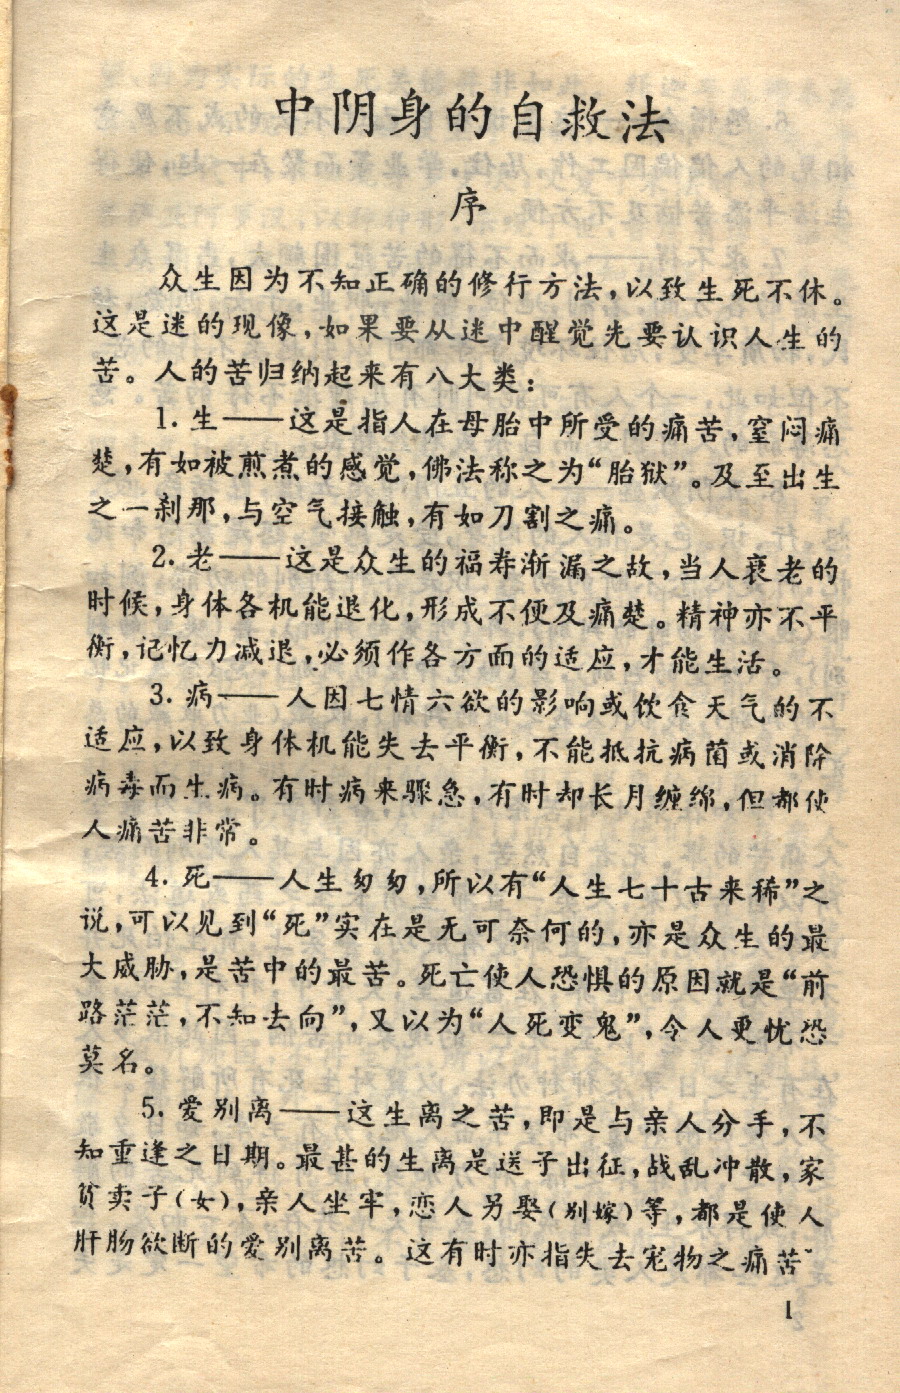 中阴身的自救法
序
众生因为不知正确的修行方法，以致生死不休。
这是迷的现像，如果要从迷中醒觉先要认识人生的
苦。人的苦归纳起来有八大类：
1. 生——这是指人在母胎中所受的痛苦，窒闷痛
楚，有如被煎煮的感觉，佛法称之为“胎狱”。及至出生
之一刹那，与空气接触，有如刀割之痛。
2. 老——这是众生的福寿渐漏之故，当人衰老的
时候，身体各机能退化，形成不便及痛楚。精神亦不平
衡，记忆力减退，必须作各方面的适应，才能生活。
3. 病——人因七情六欲的影响或饮食天气的不
适应，以致身体机能失去平衡，不能抵抗病菌或消除
病毒而生病。有时病来骤急，有时却长月缠绵，但都使
人痛苦非常。
4. 死——人生匆匆，所以有“人生七十古来稀”之
说，可以见到“死”实在是无可奈何的，亦是众生的最
大威胁，是苦中的最苦。死亡使人恐惧的原因就是“前
路茫茫，不知去向”，又以为“人死变鬼”，令人更忧恐
莫名。
5. 爱别离——这生离之苦，即是与亲人分手，不
知重逢之日期。最甚的生离是送子出征，战乱冲散，家
贫卖子（女），亲人坐牢，恋人另娶（别嫁）等，都是使人
肝肠欲断的爱别离苦。这有时亦指失去宠物之痛苦
1